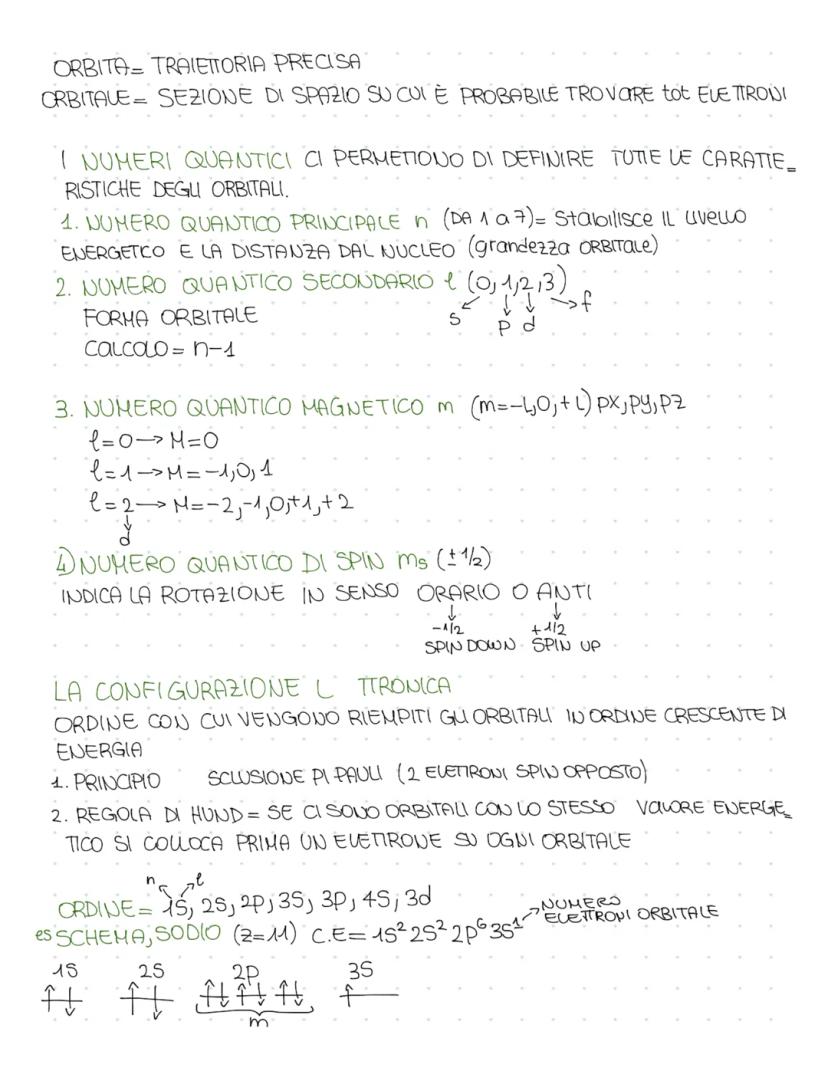 ORBITA= TRAIETTORIA PRECISA
ORBITALE= SEZIONE DI SPAZIO SU CUI È PROBABILE TROVARE tot ELETTRONI
I NUMERI QUANTICI CI PERMETTONO DI DEFINIRE TUTTE LE CARATTE_
RISTICHE DEGLI ORBITALI.
1. NUMERO QUANTICO PRINCIPALE n (DA 1 a 7)= Stabilisce IL LIVELLO
ENERGETICO E LA DISTANZA DAL NUCLEO (grandezza ORBITALE)
2. NUMERO QUANTICO SECONDARIO l (0,1,2,3)
s p d f
FORMA ORBITALE
CALCOLO= n-1
3. NUMERO QUANTICO MAGNETICO m (m=-l,0,+l) px,py,pz
l=0→M=0
l=1→M=-1,0,1
l=2→M=-2,-1,0,+1,+2
d
4)NUMERO QUANTICO DI SPIN ms (±1/2)
INDICA LA ROTAZIONE IN SENSO ORARIO O ANTI
-1/2 +1/2
SPIN DOWN SPIN UP
LA CONFIGURAZIONE L TTRONICA
ORDINE CON CUI VENGONO RIEMPITI GLI ORBITALI IN ORDINE CRESCENTE DI
ENERGIA
1. PRINCIPIO SCLUSIONE DI PAULI (2 ELETTRONI SPIN OPPOSTO)
2. REGOLA DI HUND= SE CI SONO ORBITALI CON LO STESSO VALORE ENERGE_
TICO SI COLLOCA PRIMA UN ELETTRONE SU OGNI ORBITALE
n l
ORDINE= 1S, 2S, 2P, 3S, 3P, 4S, 3d
NUMERO
ELETTRONI ORBITALE
es SCHEMA, SODIO (Z=11) C.E= 1S² 2S² 2p⁶ 3S¹
1S 2S 2P 3S
m